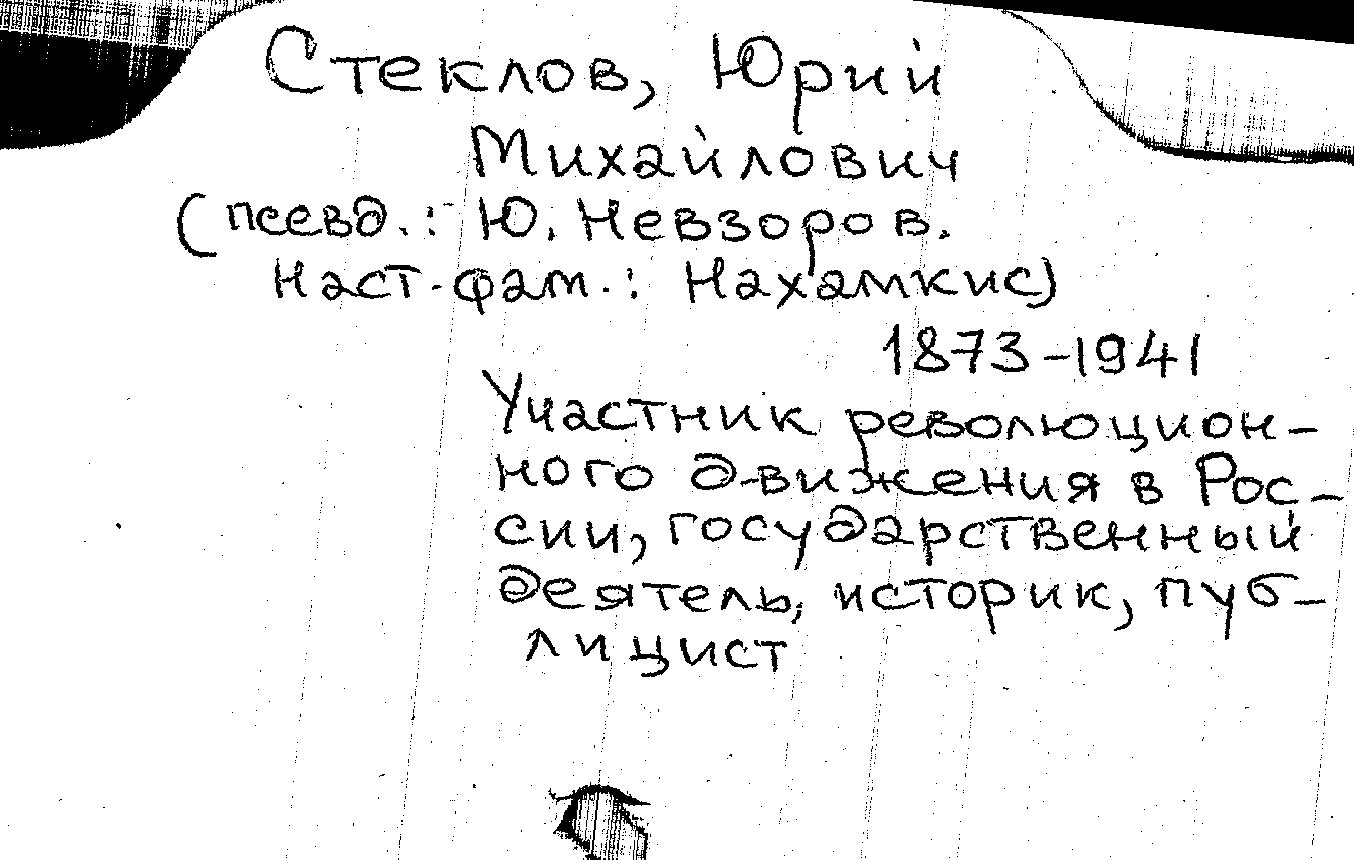 Стеклов, Юрий
Михайлович
(псевд.: Ю. Невзоров.
Наст. фам.: Нахамкис)
1873-1941
Участник революцион-
ного движения в Рос-
сии, государственный
деятель, историк, пуб-
лицист